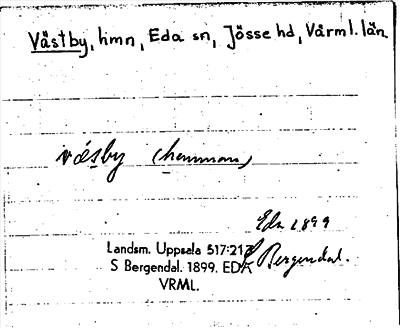 Västby, hmn, Eda sn, Jösse hd, Värml. län.
väsby (hemman)
Eda 1899
Landsm. Uppsala 517:217
S Bergendal. 1899. EDA
Bergendal.
VRML.